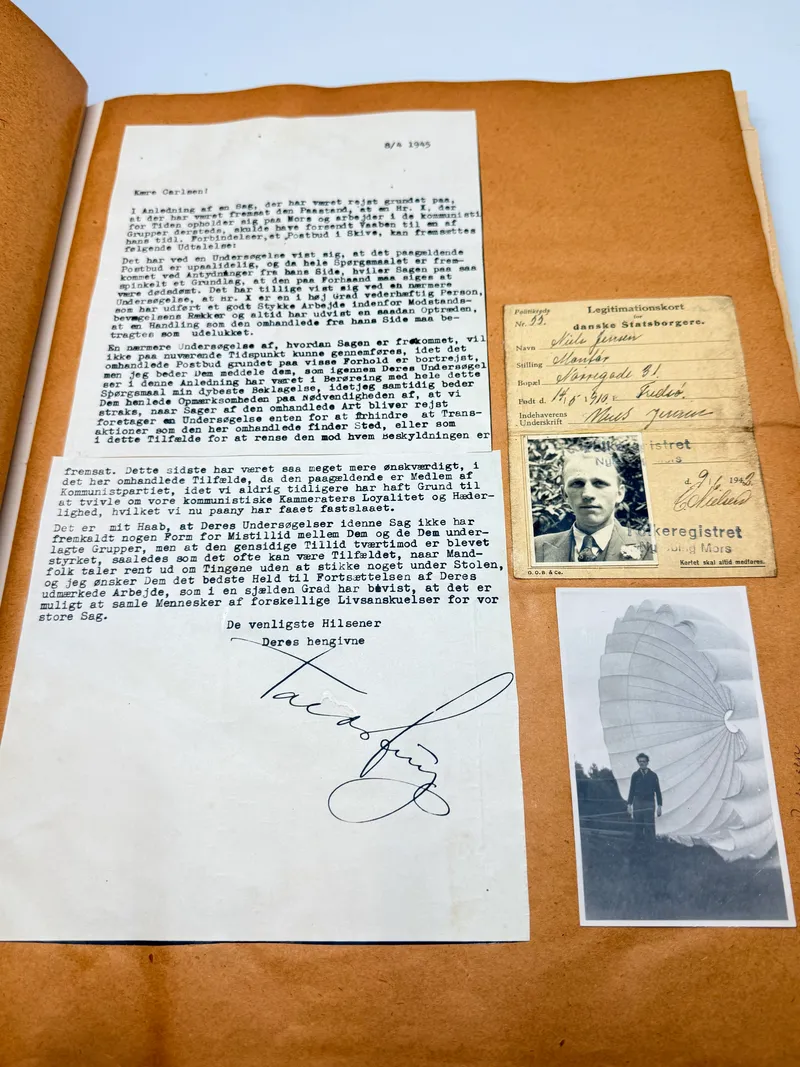 8/4 1945
Kære Carlsen!
I Anledning af en Sag, der har været rejst grundet paa,
at der har været fremsat den Paastand, at en Hr. X, der
for Tiden opholder sig paa Mors og arbejder i de kommunisti
Grupper dersteds, skulde have forsendt Vaaben til en af
hans tidl. Forbindelser, et Postbud i Skive, kan fremsættes
følgende Udtalelse:
Det har ved en Undersøgelse vist sig, at det paagældende
Postbud er upaalidelig, og da hele Spørgsmaalet er frem-
kommet ved Antydninger fra hans Side, hviler Sagen paa saa
spinkelt et Grundlag, at den paa Forhaand maa siges at
være dødsdømt. Det har tillige vist sig ved en nærmere
Undersøgelse, at Hr. X er en i høj Grad vederhæftig Person,
som har udført et godt Stykke Arbejde indenfor Modstands-
bevægelsens Rækker og altid har udvist en saadan Optræden,
at en Handling som den omhandlede fra hans Side maa be-
tragtes som udelukket.
En nærmere Undersøgelse af, hvordan Sagen er fremkommet, vil
ikke paa nuværende Tidspunkt kunne gennemføres, idet det
omhandlede Postbud grundet paa visse Forhold er bortrejst,
men jeg beder Dem meddele dem, som igennem Deres Undersøgel
ser i denne Anledning har været i Berøreing med hele dette
Spørgsmaal min dybeste Beklagelse, idetjeg samtidig beder
Dem henlede Opmærksomheden paa Nødvendigheden af, at vi
straks, naar Sager af den omhandlede Art bliver rejst
foretager en Undersøgelse enten for at forhindre at Trans-
aktioner som den her omhandlede finder Sted, eller som
i dette Tilfælde for at rense den mod hvem Beskyldningen er
fremsat. Dette sidste har været saa meget mere ønskværdigt, i
det her omhandlede Tilfælde, da den paagældende er Medlem af
Kommunistpartiet, idet vi aldrig tidligere har haft Grund til
at tvivle om vore kommunistiske Kammeraters Loyalitet og Hæder-
lighed, hvilket vi nu paany har faaet fastslaaet.
Det er mit Haab, at Deres Undersøgelser idenne Sag ikke har
fremkaldt nogen Form for Mistillid mellem Dem og de Dem under-
lagte Grupper, men at den gensidige Tillid tværtimod er blevet
styrket, saaledes som det ofte kan være Tilfældet, naar Mand-
folk taler rent ud om Tingene uden at stikke noget under Stolen,
og jeg ønsker Dem det bedste Held til Fortsættelsen af Deres
udmærkede Arbejde, som i en sjælden Grad har bevist, at det er
muligt at samle Mennesker af forskellige Livsanskuelser for vor
store Sag.
De venligste Hilsener
Deres hengivne
Legitimationskort
for
danske Statsborgere.
Nr. 33.
Navn Niels Jensen
Stilling Montør
Bopæl Nørregade 31.
Født d. 14/5 1910. Fredsø.
Indehaverens
Underskrift Niels Jensen
Folkeregistret
d. 9/6 1942
C. Nielsen
Folkeregistret
Nykøbing Mors
Kortet skal altid medføres.